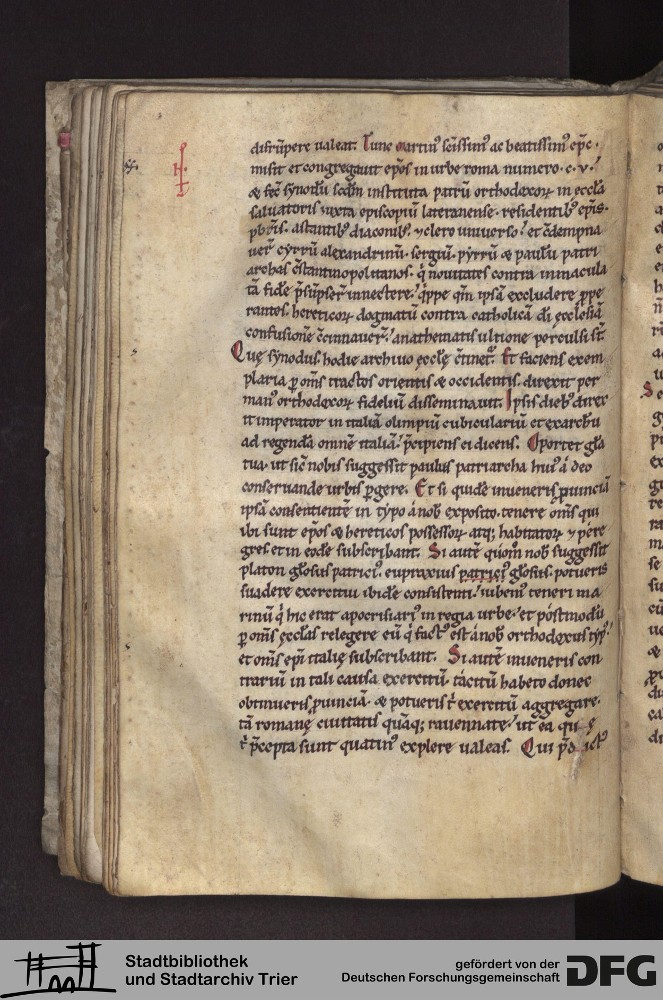 disrūpere ualeat. Tunc martin᷒ sc̄issim᷒ ac beatissim᷒ ep̄c.
misit et congregauit ep̄os in urbe roma numero .c.v.
& fec̄ synodū scđm instituta patrū orthodoxoꝝ in eccl̄a
saluatoris iuxta episcopiū lateranense. residentib᷒ ep̄is.
p̄bris. astantib᷒ diaconib᷒. ⁊ clero uniuerso. et ꝯdempna
uer̄ cyrrū alexandrinū. sergiū. pyrrū & paulū patri
archas ꝯstantinopolitanos. q̇ nouitates contra inmacula
tā fidē p̄sūpser̄ innectere. q̇ppe qm̄ ipsā excludere ꝓpe
rantes. hereticoꝝ dogmatū contra catholicā dī ęcclesiā
confusionē ꝯcinnauer̄. anathematis ultione perculsi st̄.
Quę synodus hodie archiuo ęccl̄ę ꝯtinet᷒. Et faciens exem
plaria ꝑ om̄s tractos orientis & occidentis. direxit per
man᷒ orthodoxoꝝ fideliū disseminauit. Ipsis dieb᷒ direx
it imperator in italiā olimpiū cubiculariū et exarchū
ad regendā omnē italiā. p̄cipiens ei dicens. Oportet gl̄a
tua. ut sic̄ nobis suggessit paulus patriarcha hui᷒ a deo
conseruande urbis ꝑgere. Et si quidē inueneris ꝓuinciā
ipsā consentientē in typo a nob̄ exposito. tenere om̄s qui
ibi sunt ep̄os & hereticos possessoꝝ atq; habitatoꝝ ⁊ pere
gros et in eodē subscribant. Si autē quom̄ nob̄ suggessit
platon gl̄osus patrici᷒. eupraxius patrici᷒ gl̄osus. potueris
suadere exercitui ibidē consistenti. iubem᷒ teneri ma
rinū q̇ hic erat apocrisiari᷒ in regia urbe. et postmodū
ꝑ om̄s ęccl̄as relegere eū q̇ fact᷒ est a nob̄ orthodoxus typ᷒
et om̄s epi italię subscribant. Si autē inueneris con
trariū in tali causa exercitū. tacitū habeto donec
obtinueris ꝓuinciā. & potueris t̄ exercitū aggregare.
tā romanę ciuitatis quāq; rauennate. ut ea quę
t̄ p̄cepta sunt quatin᷒ explere ualeas. Qui p̄dict᷒
Stadtbibliothek
und Stadtarchiv Trier
gefördert von der
Deutschen Forschungsgemeinschaft
DFG